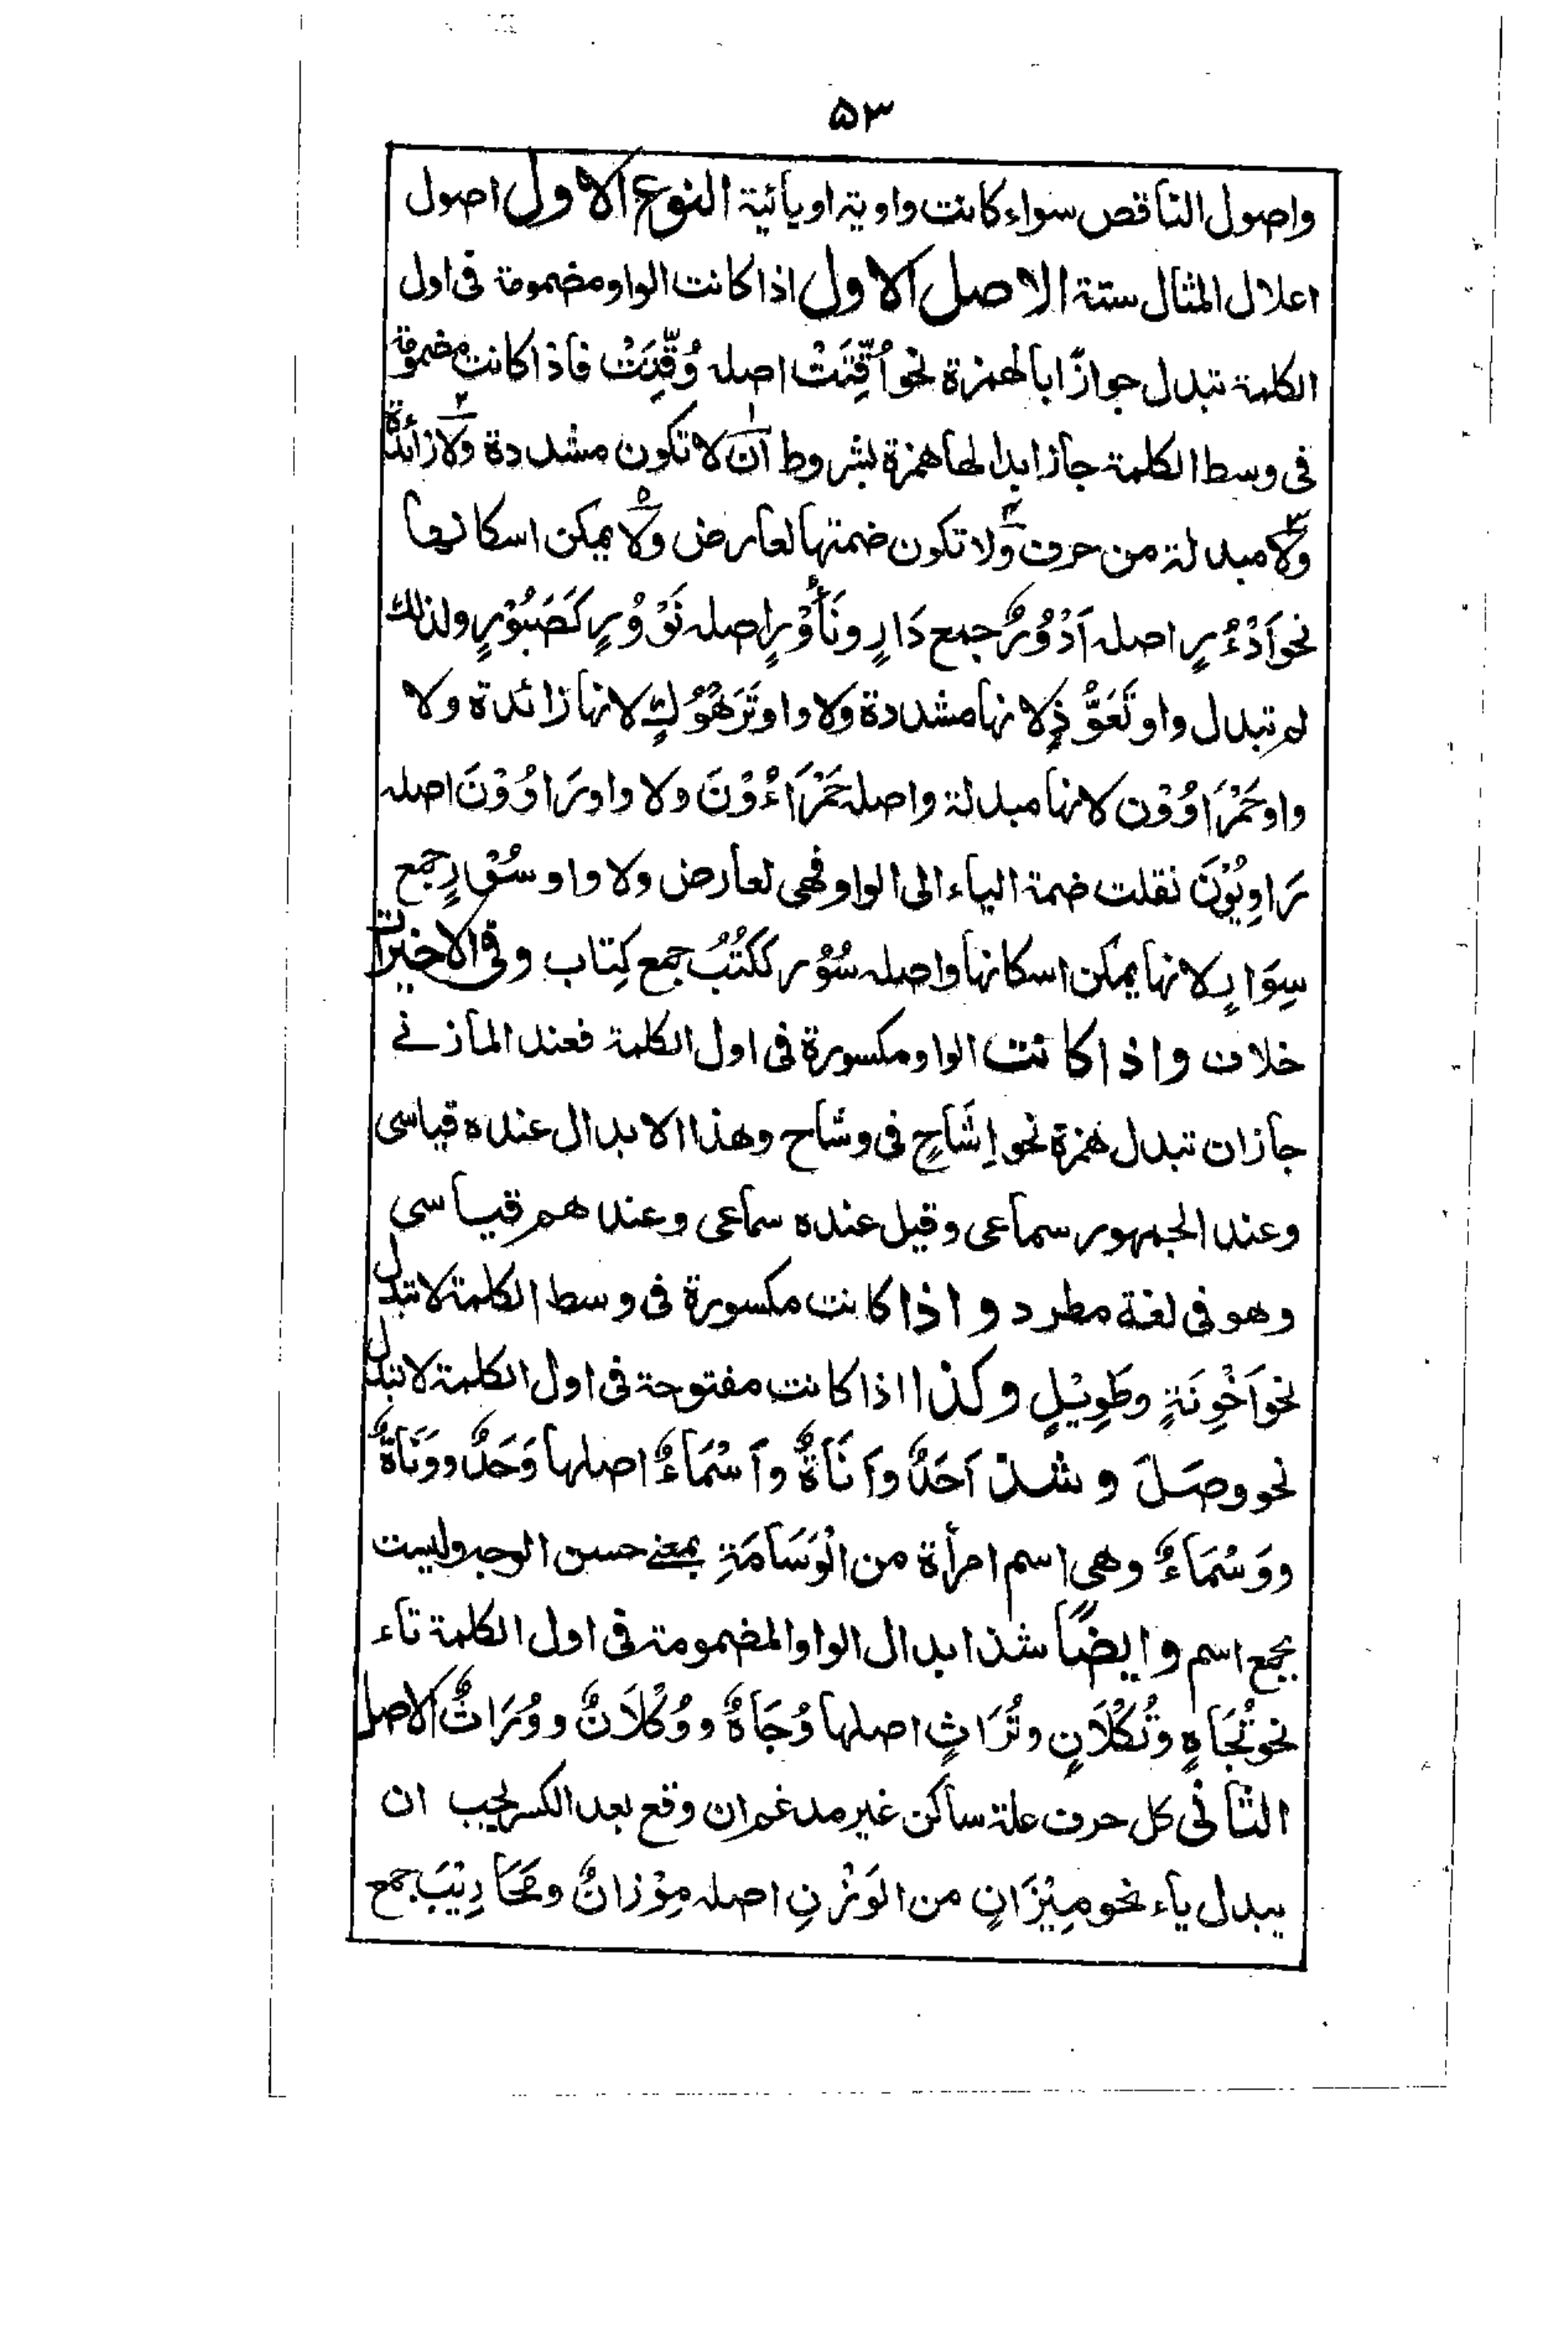 ۵۳
واصول الناقص سواء كانت واوية او يائية النوع الاول اصول
اعلال المثال ستة الاصل الاول اذا كانت الواو مضمومة فى اول
الكلمة تبدل جوازًا بالهمزة نحو اُقِّتَتْ اصله وُقِّتَتْ فاذا كانت مضمومة
فى وسط الكلمة جاز ابدالها همزة بشروط ۱ ان لا تكون مشددة ۲ ولا زائدة
۳ ولا مبدلة من حرف ۴ ولا تكون ضمتها لعارض ۵ ولا يمكن اسكانها
نحو اَدْءُرٍ اصله اَدْوُرٌ جمع دَارٍ ونَأُوْرٍ اصله نَوُوْرٍ كَصَبُوْرٍ ولذلك
لم تبدل واو تَعَوُّذٍ لانها مشددة ولا واو تَرَهْوُكٍ لانها زائدة ولا
واو حَمْرَاوُوْن لانها مبدلة واصله حَمْرَاءُوْنَ ولا واو رَاوُوْنَ اصله
رَاوِيُوْنَ نقلت ضمة الياء الى الواو فهى لعارض ولا واو سُوْرٍ جمع
سِوَارٍ لانها يمكن اسكانها واصله سُوُر ككُتُبُ جمع كِتاب وفى الاخيرات
خلاف واذا كانت الواو مكسورة فى اول الكلمة فعند المازنے
جازان تبدل همزة نحو اِشَاحٍ فى وشاح وهذا الابدال عنده قياسى
وعند الجمهور سماعى وقيل عنده سماعى وعندهم قياسى
وهو فى لغة مطرد واذا كانت مكسورة فى وسط الكلمة لا تبدل
نحو اَخْوِنَةٍ وطَوِيْلٍ وكذا اذا كانت مفتوحة فى اول الكلمة لا تبدل
نحو وصَلَ وشذ اَحَدٌ واَنَاةٌ واَسْمَاءٌ اصلها وَحَدٌ ووَنَاةٌ
ووَسْمَاءٌ وهى اسم امرأة من الْوَسَامَةِ بمعنے حسن الوجه وليست
بجمع اسم وايضًا شذ ابدال الواو المضمومة فى اول الكلمة تاء
نحو تُجَاهٍ وتُكْلَانٍ وتُرَاثٍ اصلها وُجَاهٌ ووُكْلَانٌ ووُرَاثٌ الاصل
الثانى كل حرف علة ساكن غير مدغم ان وقع بعد الكسر يجب ان
يبدل ياء نحو مِيْزَانٍ من الوَزْنِ اصله مِوْزانٌ ومَحَارِيْبَ جمع